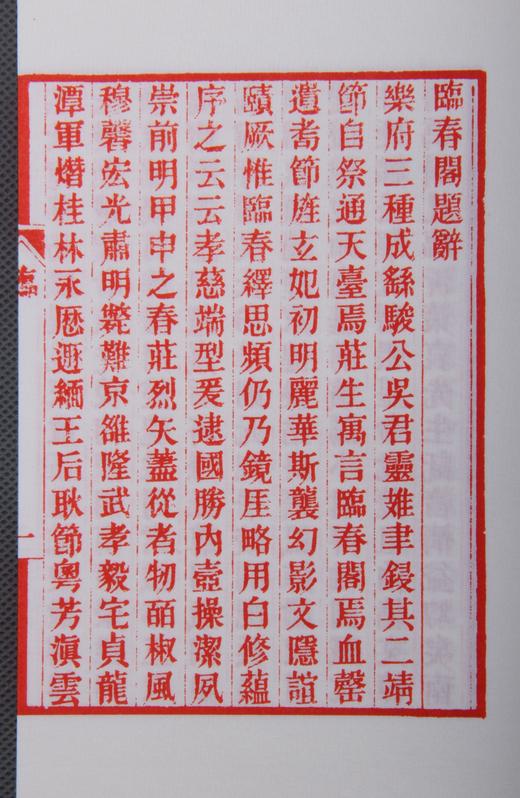 臨春閣題辭
樂府三種成繇駿公吳君靈聿鋟其二靖
節自祭通天臺焉莊生寓言臨春閣焉血罄
遺耇節旌玄妃初明麗華斯襲幻影文隱誼
賾厥惟臨春繹思頻仍乃鏡厓略用白修蘊
序之云云孝慈端型爰逮國勝內壼操潔夙
崇前明甲申之春莊烈矢藎從者牣皕椒風
穆馨宏光肅明斃難京雒隆武孝毅宅貞龍
潭軍熸桂林永厯遯緬王后耿節粵芳滇雲
一